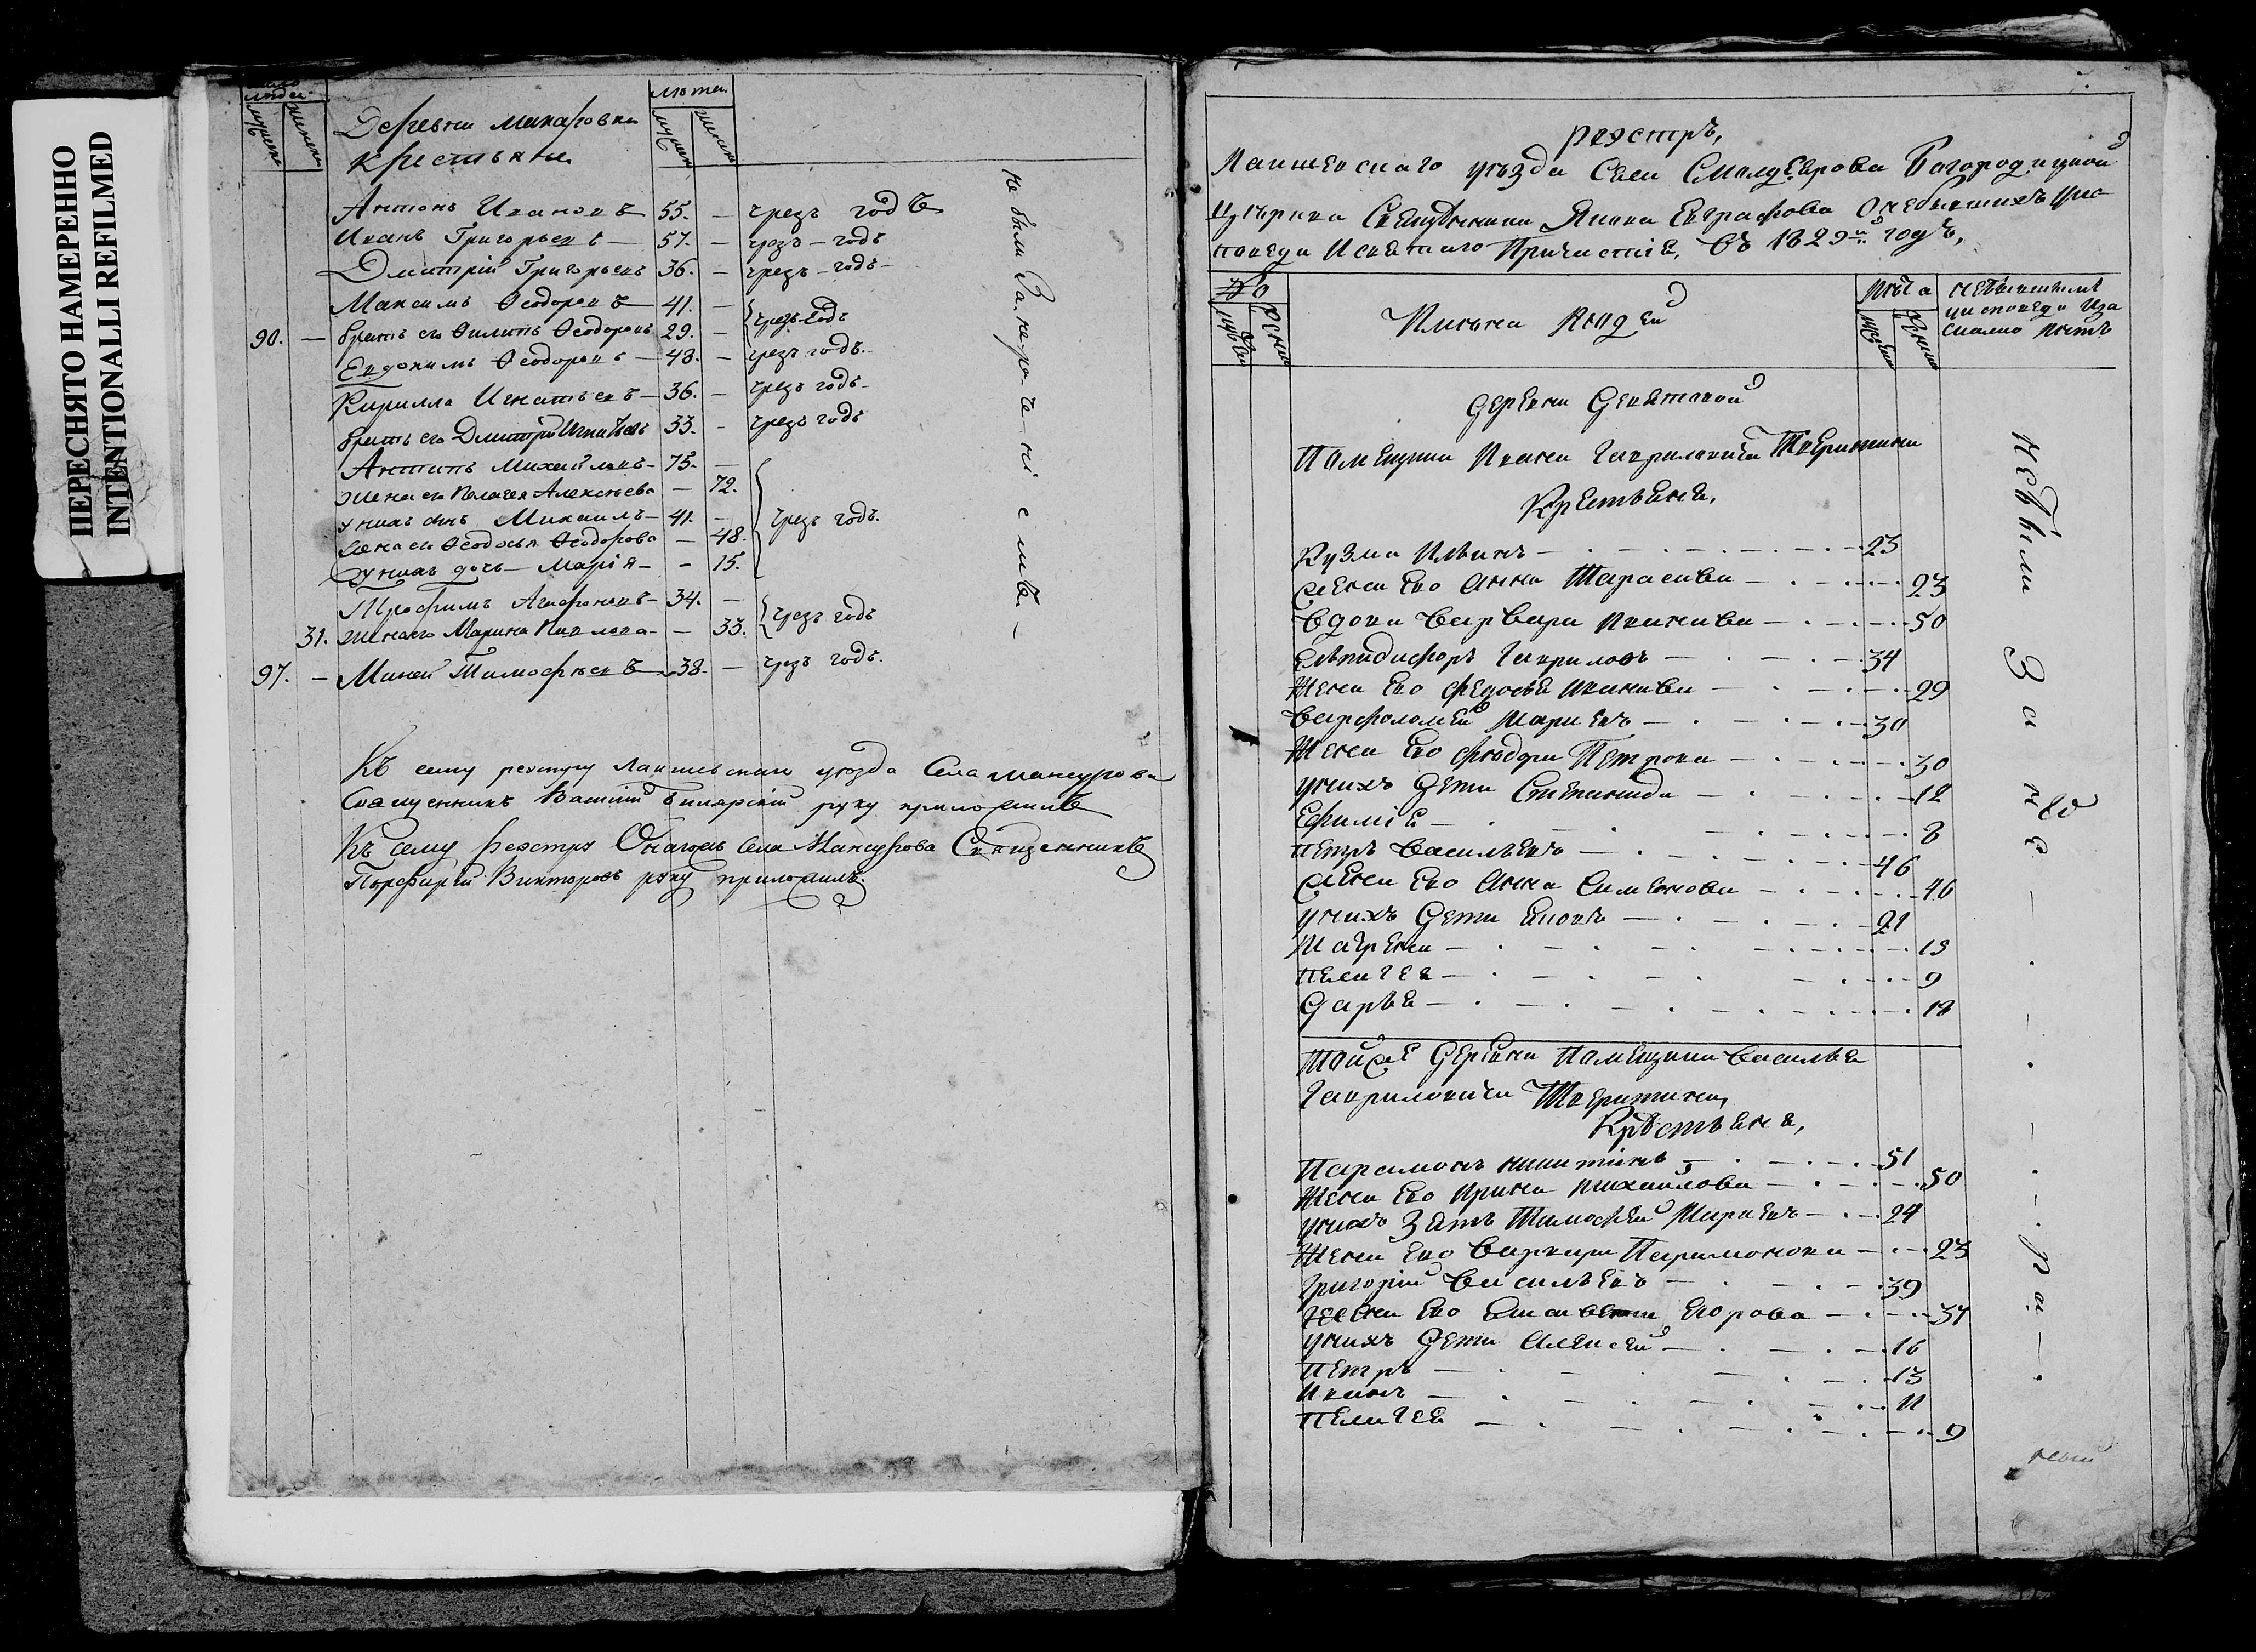 ПЕРЕСНЯТО НАМЕРЕННО
INTENTIONALLI REFILMED
людей
мужеска
женска
Деревни Макаровки
крестьяне
лета
мужеска
женска
Антонъ Ивановъ 55. — чрезъ годъ
Иванъ Григорьевъ — 57. — чрезъ — годъ
Дмитрій Григорьевъ 36. — чрезъ — годъ
Максимъ Ѳеодоровъ 41. —
90. — братъ его Филипъ Ѳеодоровъ 29. — чрезъ годъ
Евдокимъ Ѳеодоровъ — 48. — чрезъ годъ.
Кирилла Игнатьевъ — 36. — чрезъ годъ
братъ его Дмитрій Игнатьевъ 33. — чрезъ годъ
Антипъ Михайловъ — 75. —
жена его Пелагея Алексеева — 72.
у нихъ сынъ Михаилъ — 41. — чрезъ годъ.
жена его Ѳеодосья Ѳеодорова — 48.
у нихъ дочь — Марія — — 15.
Трофимъ Агафоновъ — 34. —
31. жена его Марина Павлова — — 33. чрезъ годъ
97. — Миней Тимофеевъ 38. — чрезъ годъ.
не были За нераченіемъ. —
Къ сему реэстру Лаишевскаго уезда Села Мансурова
Священникъ Василій Билярскій руку приложилъ
Къ сему реэстру Онагожъ Села Мансурова Священникъ
Порфирій Викторовъ руку приложилъ.
реэстръ,
Лаишевскаго уезда Села Смалдеярова Богородицкой
церкви Священника Якова Евграфова О небывшихъ уис
поведи И святаго Причастіе, въ 1829м. годъ,
Имена людей
лета
небывшихъ
уисповеди Иза
сколко летъ
деревни Девятовой
Памещика Ивана Гавриловича Тверитина
Крестьяне,
Кузма Ильинъ — 23
жена Ево Анна Тарасива — 23
вдова варвара Иванива — 50
Елпидифоръ Гавриловъ — 34
жена Ево федосья Иванива — 29
варфоломей Марковъ — 30
жена Ево федора Петрова — 30
унихъ дети Степанида — 12
Ефиміе — 8
петръ васильевъ — 46
жена Ево Анна Симёнова — 46
унихъ дети — 21
Матрена — 13
пелагея — 9
дарье —
тойже деревни Памещика василья
Гавриловича Тверитина,
Крестьяне,
Парамонъ никитинъ — 51
жена Ево Ирина михайлова — 50
унихъ Зять Тимофей Марковъ — 24
жена Ево варвара Парамонова — 23
Григорій васильевъ — 39
жена Ево Елисавета Егорова — 34
унихъ дети Алексей — 16
петръ — 13
Иванъ — 11
пелагея — 9
небыли За не